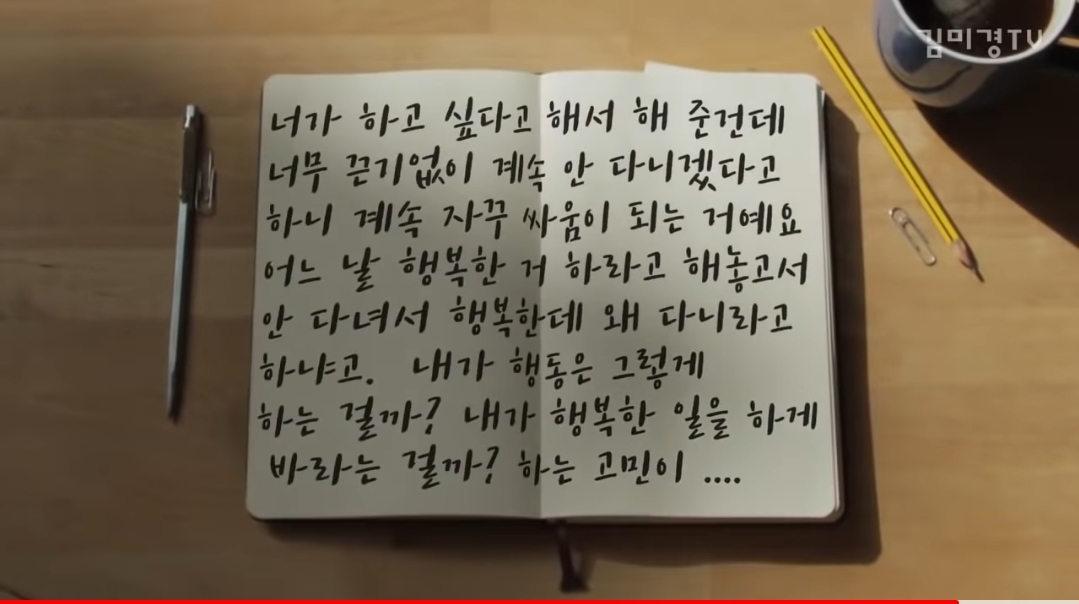 김미경TV
너가 하고 싶다고 해서 해 준건데
너무 끈기없이 계속 안 다니겠다고
하니 계속 자꾸 싸움이 되는 거예요
어느 날 행복한 거 하라고 해놓고서
안 다녀서 행복한데 왜 다니라고
하냐고. 내가 행동은 그렇게
하는 걸까? 내가 행복한 일을 하게
바라는 걸까? 하는 고민이 ....